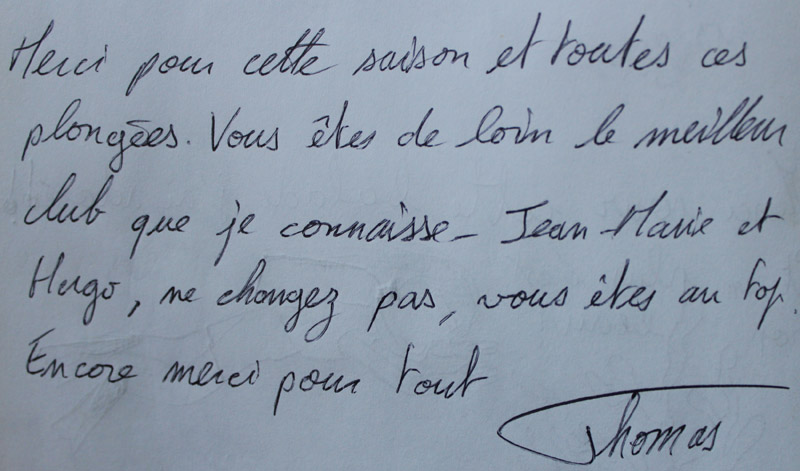 Merci pour cette saison et toutes ces
plongées. Vous êtes de loin le meilleur
club que je connaisse - Jean-Marie et
Hugo, ne changez pas, vous êtes au top.
Encore merci pour tout
Thomas